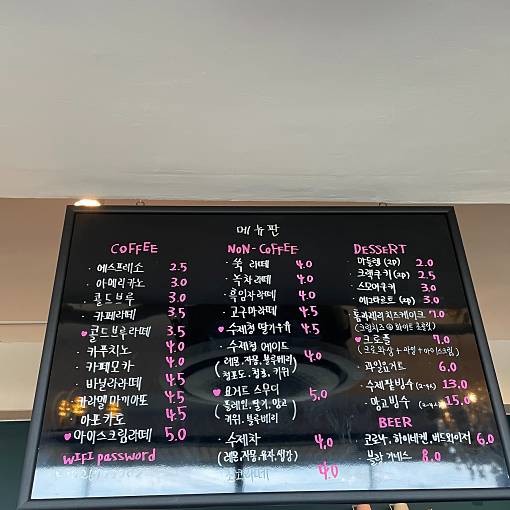 메뉴판
COFFEE
· 에스프레소 2.5
· 아메리카노 3.0
· 콜드브루 3.0
· 카페라떼 3.5
♥ 콜드브루라떼 3.5
· 카푸치노 4.0
· 카페모카 4.0
· 바닐라라떼 4.5
카라멜 마끼아또 4.5
· 아포카토 4.5
♥ 아이스크림라떼 5.0
WIFI password
NON-COFFEE
· 쑥 라떼 4.0
· 녹차라떼 4.0
· 흑임자라떼 4.0
· 고구마라떼 4.5
♥ 수제청 딸기우유 4.5
· 수제청 에이드 4.0
(레몬,자몽,블루베리
청포도, 청귤, 키위)
♥ 요거트 스무디 5.0
(플레인, 딸기, 망고
키위, 블루베리)
· 수제차 4.0
(레몬,자몽,유자,생강)
4.0
DESSERT
· 마들렌 (2p) 2.0
· 크랙쿠키(2p) 2.5
· 스모어쿠키 3.0
· 에그타르트 (2p) 3.0
· 바스크치즈케이크 7.0
♥ 크로플 7.0
(크로와상 + 와플 + 아이스크림)
· 과일요거트 6.0
· 수제팥빙수 (2-4人) 13.0
· 망고빙수 (2-4人) 15.0
BEER
· 코로나, 하이네켄, 버드와이저 6.0
· 블랑, 기네스 8.0